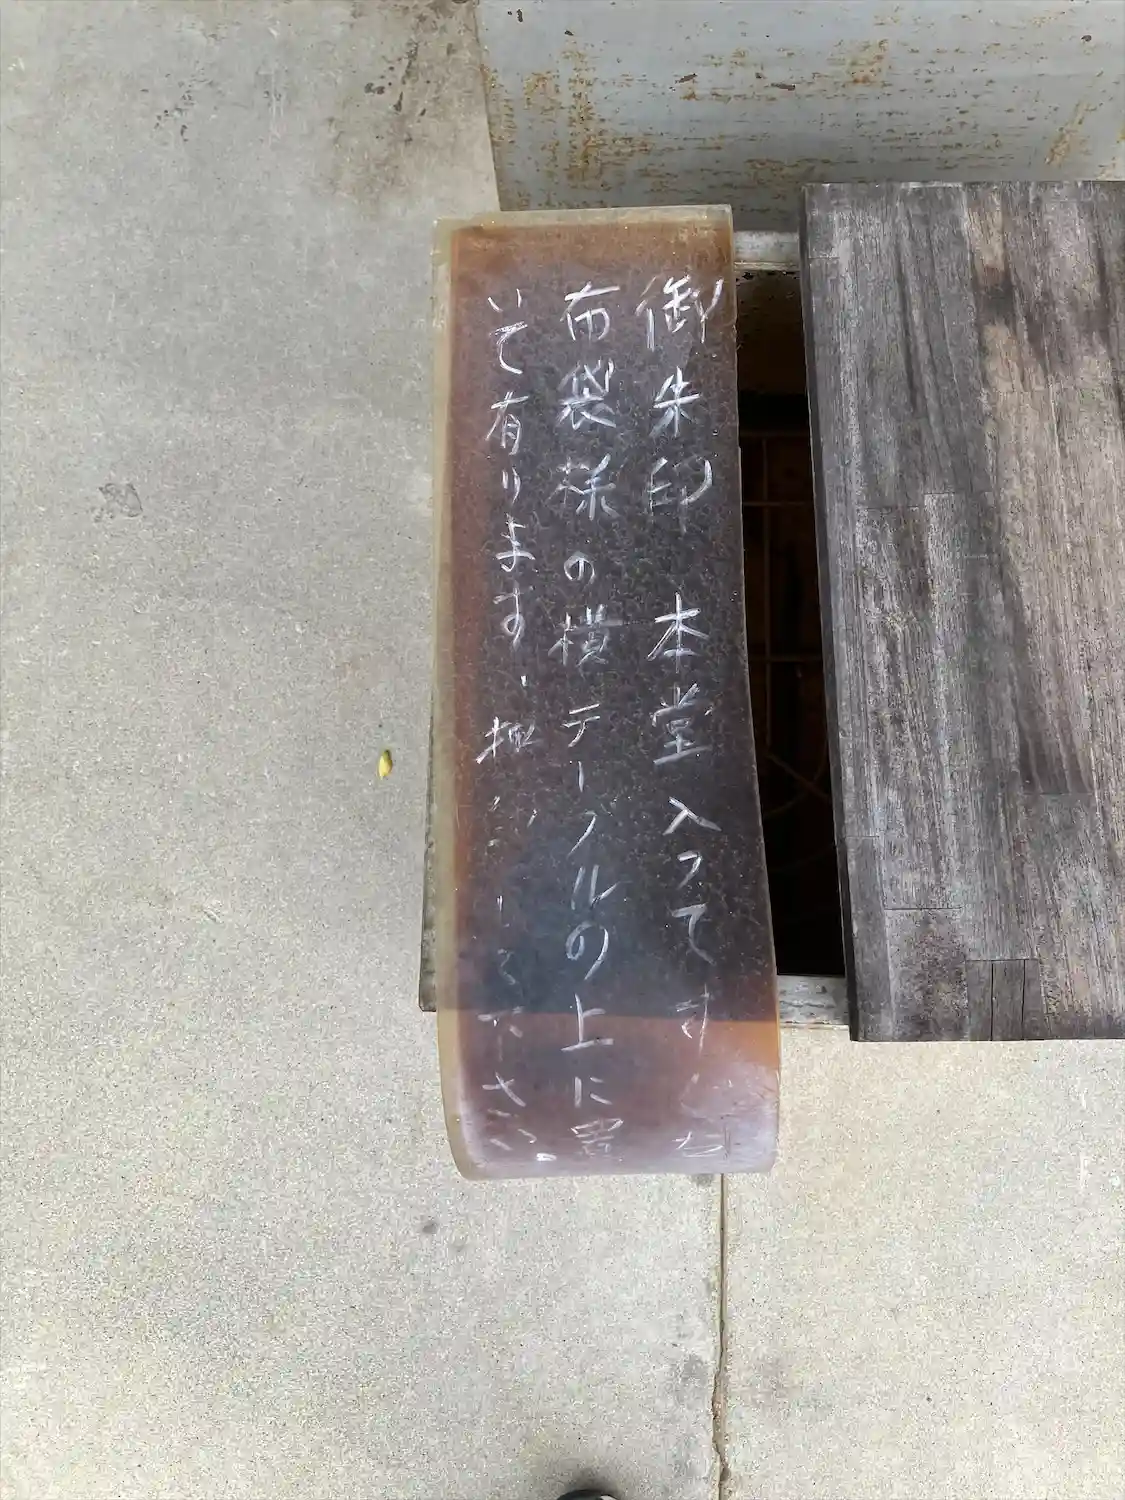 御朱印 本堂 入ってすぐな
布袋様の横テーブルの上に置
いて有ります、
ください。